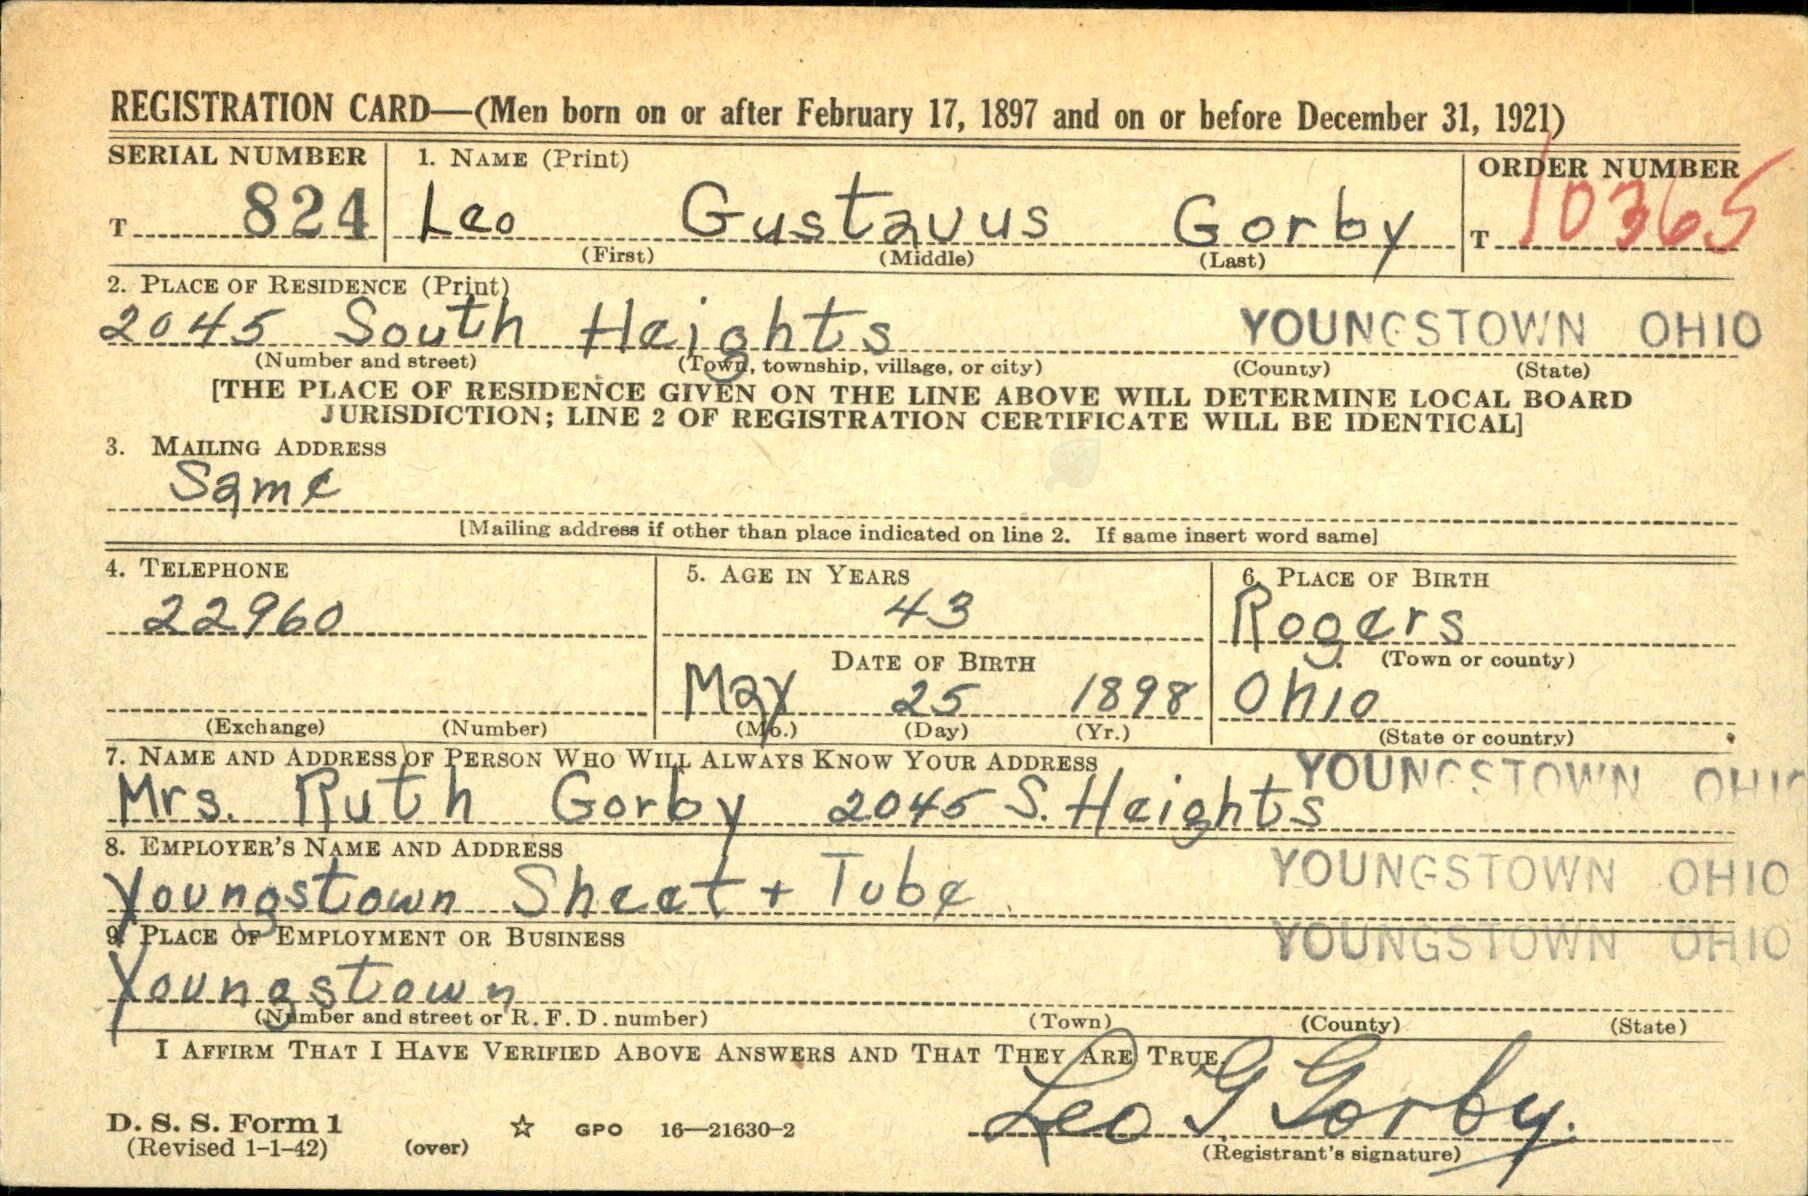 REGISTRATION CARD—(Men born on or after February 17, 1897 and on or before December 31, 1921)
SERIAL NUMBER 1. NAME (Print) ORDER NUMBER
T 824 Leo Gustavus Gorby T 10365
(First) (Middle) (Last)
2. PLACE OF RESIDENCE (Print)
2045 South Heights YOUNGSTOWN OHIO
(Number and street) (Town, township, village, or city) (County) (State)
[THE PLACE OF RESIDENCE GIVEN ON THE LINE ABOVE WILL DETERMINE LOCAL BOARD
JURISDICTION; LINE 2 OF REGISTRATION CERTIFICATE WILL BE IDENTICAL]
3. MAILING ADDRESS
Same
[Mailing address if other than place indicated on line 2. If same insert word same]
4. TELEPHONE 5. AGE IN YEARS 6. PLACE OF BIRTH
22960 43 Rogers
DATE OF BIRTH (Town or county)
May 25 1898 Ohio
(Exchange) (Number) (Mo.) (Day) (Yr.) (State or country)
7. NAME AND ADDRESS OF PERSON WHO WILL ALWAYS KNOW YOUR ADDRESS
Mrs. Ruth Gorby 2045 S. Heights YOUNGSTOWN OHIO
8. EMPLOYER'S NAME AND ADDRESS
Youngstown Sheet + Tube YOUNGSTOWN OHIO
9. PLACE OF EMPLOYMENT OR BUSINESS
Youngstown YOUNGSTOWN OHIO
(Number and street or R. F. D. number) (Town) (County) (State)
I AFFIRM THAT I HAVE VERIFIED ABOVE ANSWERS AND THAT THEY ARE TRUE.
Leo G Gorby.
D. S. S. Form 1
(Revised 1-1-42) (over) ☆ GPO 16—21630-2 (Registrant's signature)